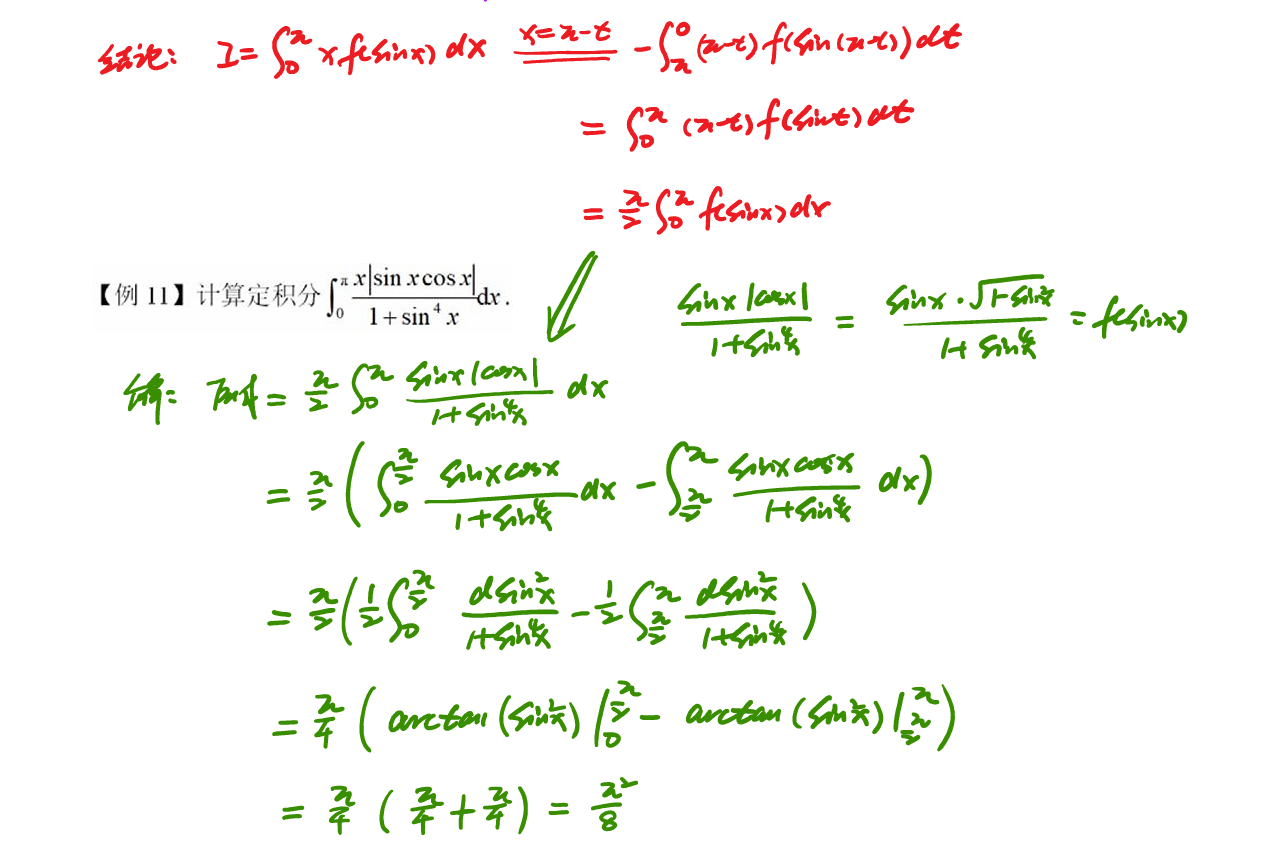 结论: I = ∫₀^π x f(sinx) dx x=π-t - ∫_π^0 (π-t) f(sin(π-t)) dt
= ∫₀^π (π-t) f(sint) dt
= π/2 ∫₀^π f(sinx) dx
【例 11】计算定积分 ∫₀^π x|sin x cos x| / (1+sin⁴ x) dx.
sinx |cosx| / (1+sin⁴x) = sinx · √(1-sin²x) / (1+sin⁴x) = f(sinx)
解: 原式 = π/2 ∫₀^π sinx |cosx| / (1+sin⁴x) dx
= π/2 ( ∫₀^(π/2) sinx cosx / (1+sin⁴x) dx - ∫_(π/2)^π sinx cosx / (1+sin⁴x) dx )
= π/2 ( 1/2 ∫₀^(π/2) dsin²x / (1+sin⁴x) - 1/2 ∫_(π/2)^π dsin²x / (1+sin⁴x) )
= π/4 ( arctan (sin²x) |₀^(π/2) - arctan (sin²x) |_(π/2)^π )
= π/4 ( π/4 + π/4 ) = π²/8